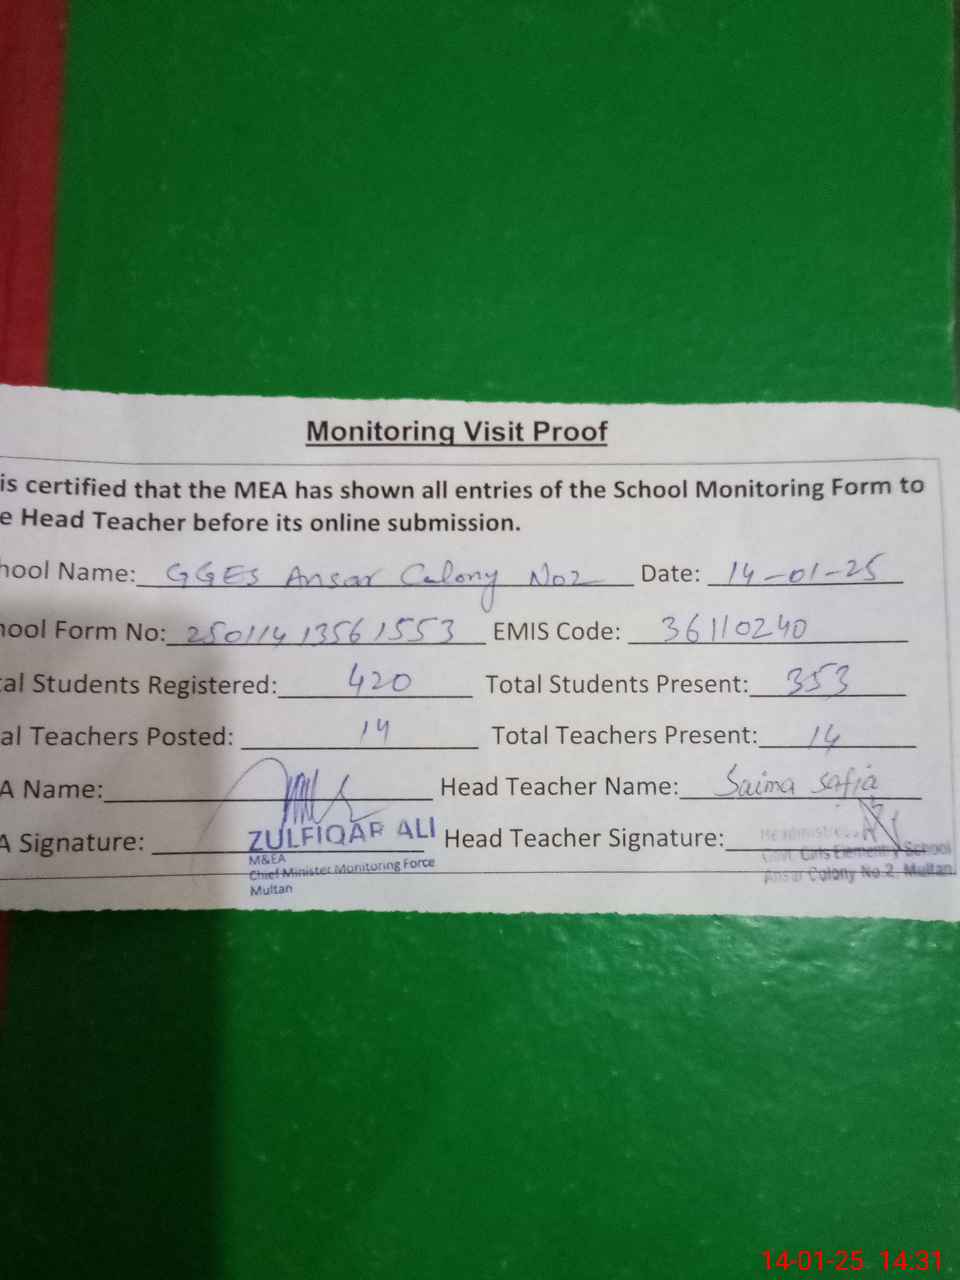 Monitoring Visit Proof
is certified that the MEA has shown all entries of the School Monitoring Form to
e Head Teacher before its online submission.
hool Name: GGES Ansar Colony No2 Date: 14-01-25
hool Form No: 25011413561553 EMIS Code: 36110240
tal Students Registered: 420 Total Students Present: 353
al Teachers Posted: 14 Total Teachers Present: 14
A Name: Head Teacher Name: Saima Safia
A Signature: ZULFIQAR ALI Head Teacher Signature:
M&EA
Chief Minister Monitoring Force
Multan
Headmistress
Govt. Girls Elementry School
Ansar Colony No.2, Multan
14-01-25 14:31